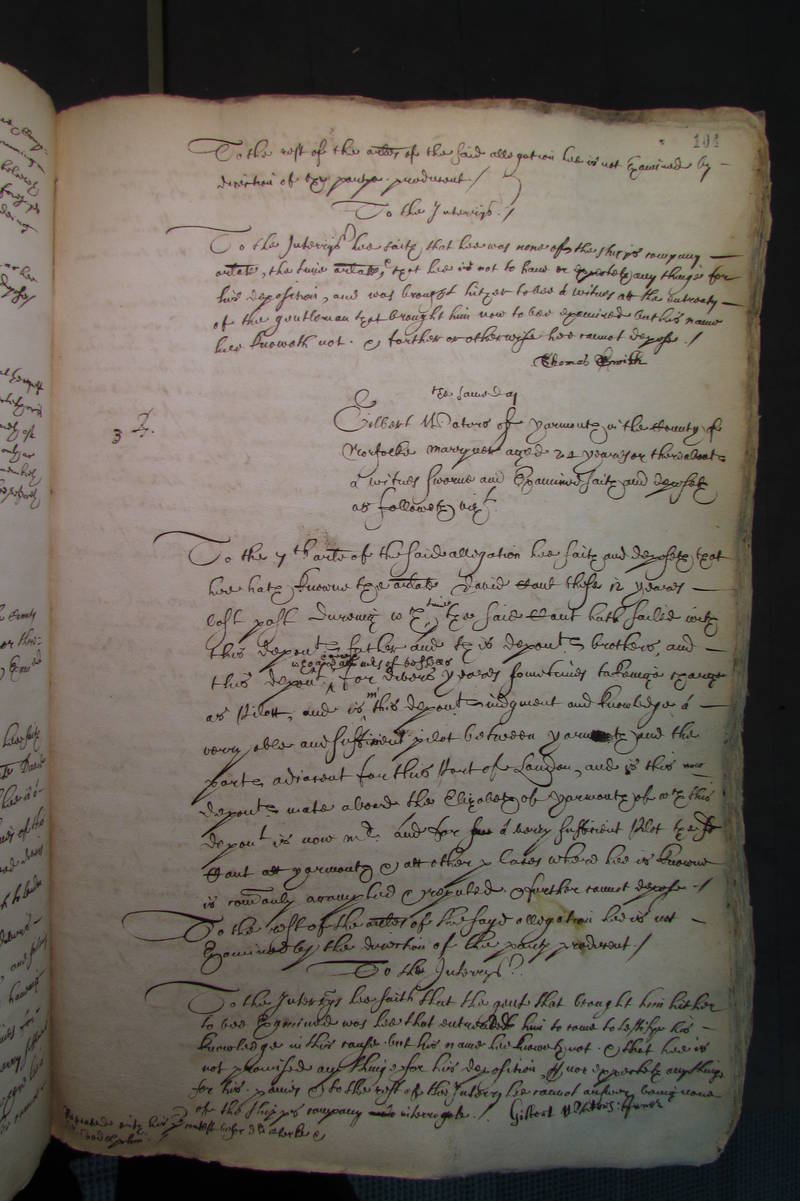 101
To the rest of the arles of the said allegation hee is not Examined by
direction of the partye producent /
To the Interrys. /
To the Interrys hee saith that hee was none of the shipps company
arlate, the time arlate, that hee is not to have or expecteth any thinge for
his deposition, and was brought hither to bee a witnes at the entreaty
of the gentleman that brought him now to bee examined but his name
hee knoweth not. & farther or otherwise hee cannot depose. /
Thomas
the same day
Gilbert Waters of Yarmouth in the County of
Norfolke marryner aged 24 yeares or thereabouts
a witnes sworne and Examined saith and deposeth
as followeth vizt.
3
To the 7th arle of the said allegation hee saith and deposeth that
hee hath knowne the arlate David Hant these 12 yeares
last past dureing wch time the said Hant hath sailed with
this deponts father and this deponts brothers, and
this depont for divers yeares sometimes takeinge chardge
as Pilott, and is in this deponts iudgment and knowledge a
very able and sufficient pilot betweene yarmouth and the
parts adiacent for this Port of London, and is this
deponts mate aboord the Elizabeth of Yarmouth of wch this
depont is now mr. and for a very sufficient Pilot the sd
Hant att yarmouth & att other places where hee is knowne
is comonly accompted & reputed & further cannot depose. /
To the rest of the arles of the sayd allegation hee is not
Examined by the direction of the party producent. /
To the Interrys.
To the Interrys hee saith that the gent that brought him hither
to bee Examined was hee that entreated him to come to testifye his
knowledge in this cause but his name hee knoweth not. & that hee is
not promised any thinge for his deposition, nor expecteth any thinge
for his paines & to the rest of this Interry hee cannot answer being none
of the shipps company interrogate. /
Gilbert Waters
Repeated with his before